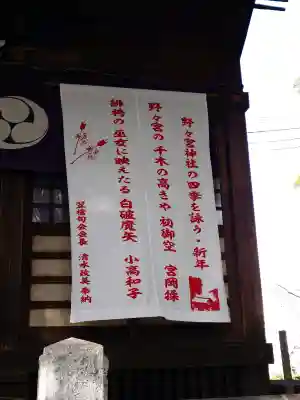 野々宮神社の四季を詠う・新年
野々宮の千木の高きや初御空　宮岡操
緋袴の巫女に映えたる白破魔矢　小高和子
清水政美奉納